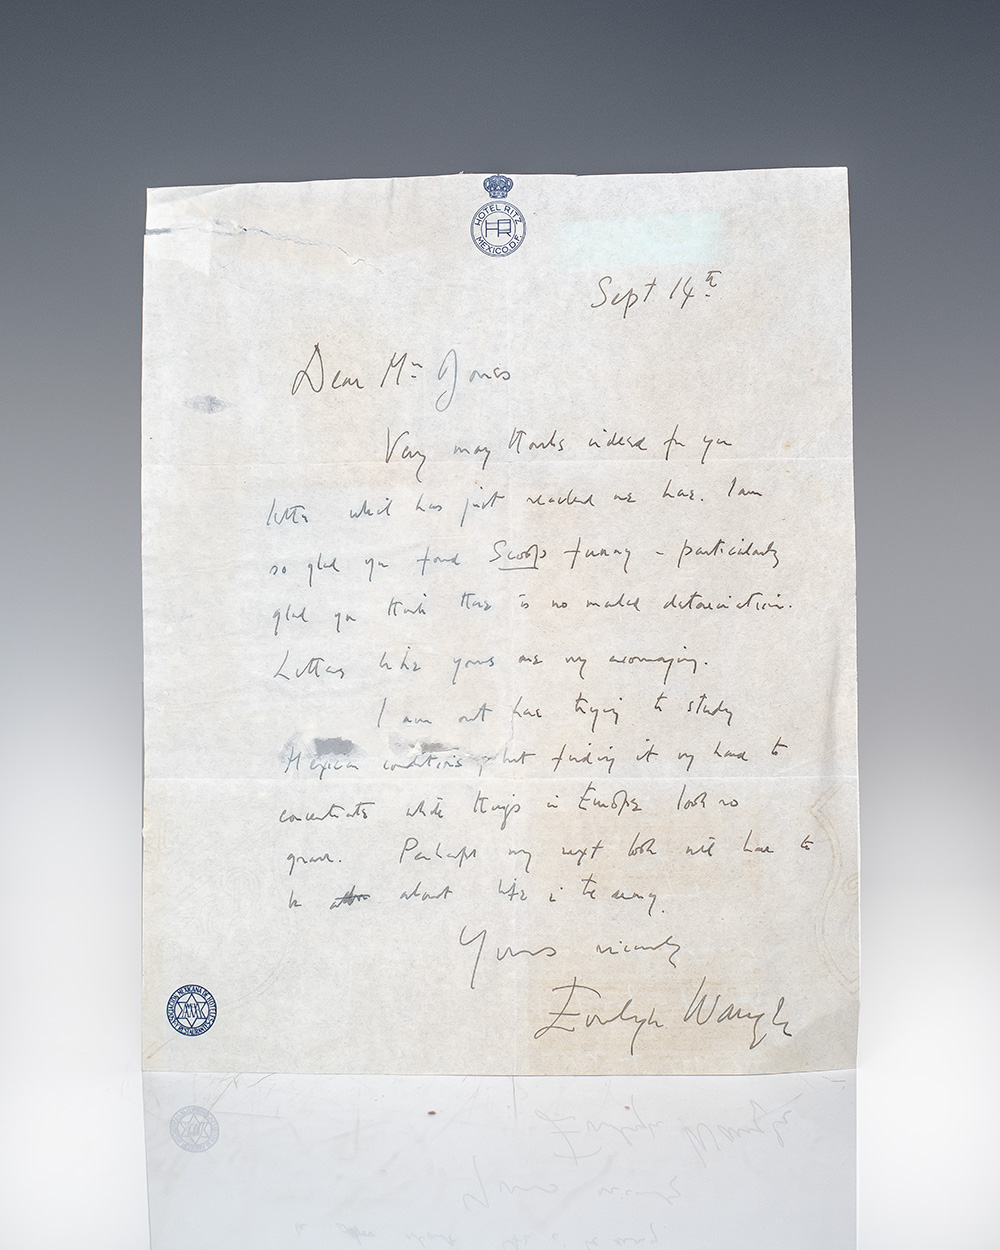 HOTEL RITZ
HR
MEXICO, D.F.
Sept 14th
Dear Mr Jones
Very many thanks indeed for your
letter which has just reached me here. I am
so glad you found Scoop funny - particularly
glad you think there is no marked deterioration.
Letters like yours are very encouraging.
I am out here trying to study
Mexican conditions, but finding it very hard to
concentrate while things in Europe look so
grave. Perhaps my next book will have to
be about life in the army.
Yours sincerely
Evelyn Waugh
ASOCIACION MEXICANA DE HOTELES